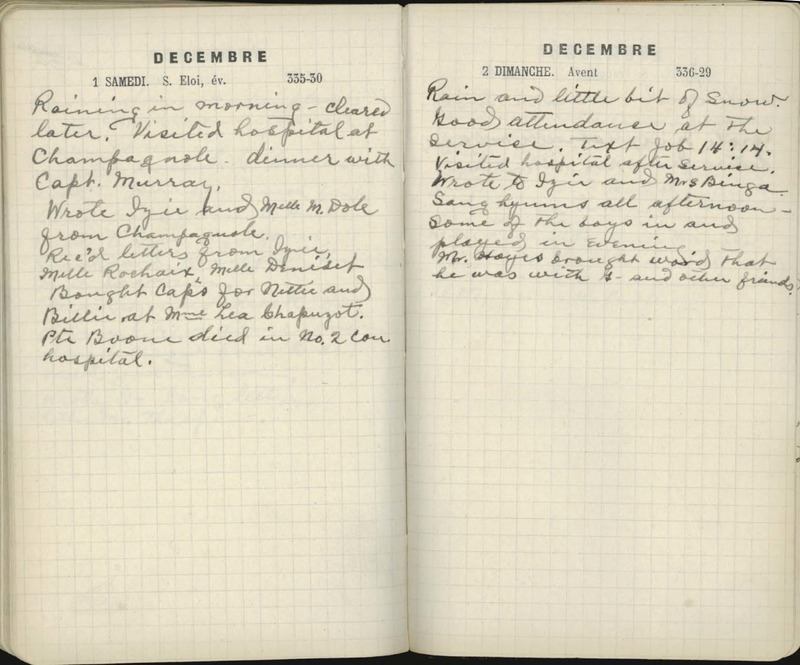 DECEMBRE
1 SAMEDI. S. Eloi, év. 335-30
Raining in morning - cleared
later. Visited hospital at
Champagnole - dinner with
Capt. Murray.
Wrote Izie and Melle M. Dole
from Champagnole.
Rec'd letters from Izie,
Melle Rochaix, Melle Deniset
Bought Caps for Nettie and
Billie at Mme Lea Chapuzot.
Pte Boone died in No. 2 Con
hospital.
DECEMBRE
2 DIMANCHE. Avent 336-29
Rain and little bit of Snow.
Good attendance at the
Service. Text Job 14:14.
Visited hospital after service.
Wrote to Izie and Mrs Binga
Sang hymns all afternoon -
some of the boys in and
played in Evening
Mr. Hayes brought word that
he was with and other friends.